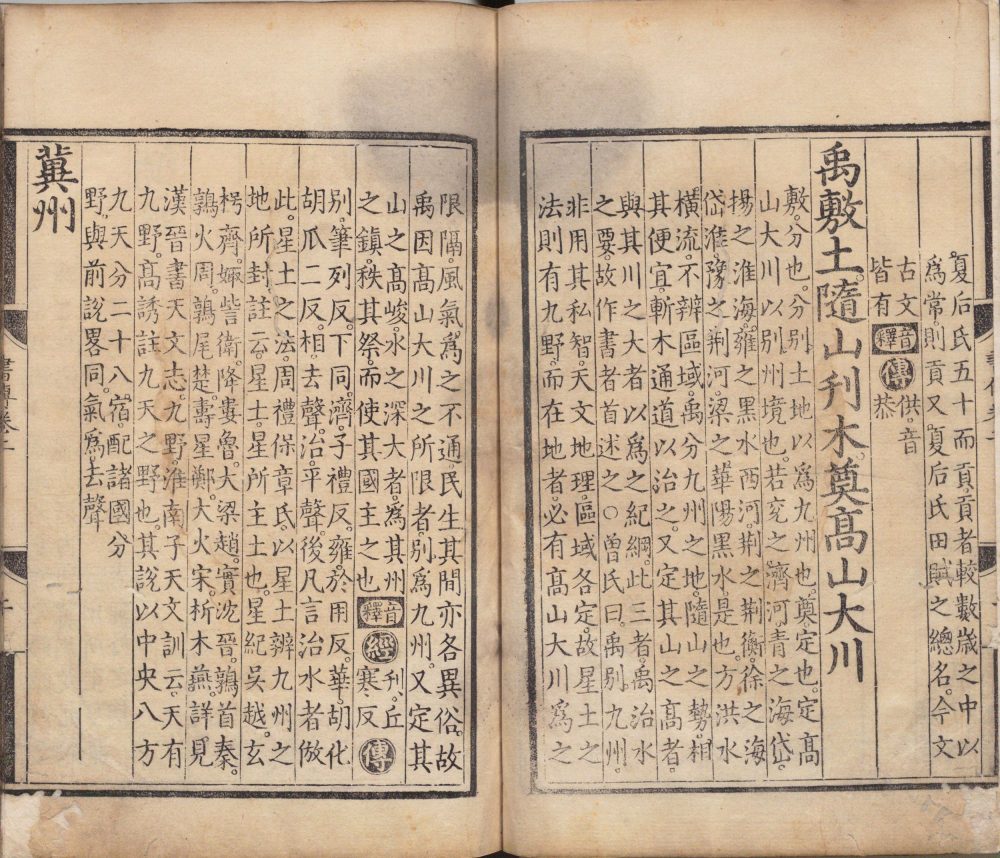 夏后氏五十而貢貢者較數歲之中以
爲常則貢又夏后氏田賦之總名。今文
古文皆有音釋傳供音恭
禹敷土。隨山刊木。奠高山大川
敷。分也。分別土地以爲九州也。奠定也。定高
山大川以別州境也。若兗之濟河青之海岱。
揚之淮海。雍之黑水西河。荊之荊衡。徐之海
岱淮。豫之荊河。梁之華陽黑水是也。方洪水
橫流。不辨區域。禹分九州之地。隨山之勢。相
其便宜。斬木通道以治之。又定其山之高者。
與其川之大者以爲之紀綱。此三者。禹治水
之要。故作書者首述之○曾氏曰。禹別九州。
非用其私智。天文地理。區域各定。故星土之
法則有九野。而在地者。必有高山大川爲之
限隔。風氣爲之不通。民生其間亦各異俗。故
禹因高山大川之所限者。別爲九州。又定其
山之高峻。水之深大者。爲其州
之鎮。秩其祭。而使其國主之也音釋經刊。丘寒反傳
別。筆列反。下同。濟。子禮反。雍。於用反。華。胡化
胡瓜二反。相。去聲。治。平聲。後凡言治水者倣
此。星土之法。周禮保章氏。以星土辨九州之
地所封。註云。星土。星所主土也。星紀吳越。玄
枵齊。娵訾衛。降婁魯。大梁趙。實沈晉。鶉首秦。
鶉火周。鶉尾楚。壽星鄭。大火宋。析木燕。詳見
漢晉書天文志。九野。淮南子天文訓云。天有
九野。高誘註。九天之野也。其說以中央八方
九天分二十八宿。配諸國分
野。與前說畧同。氣爲去聲
冀州